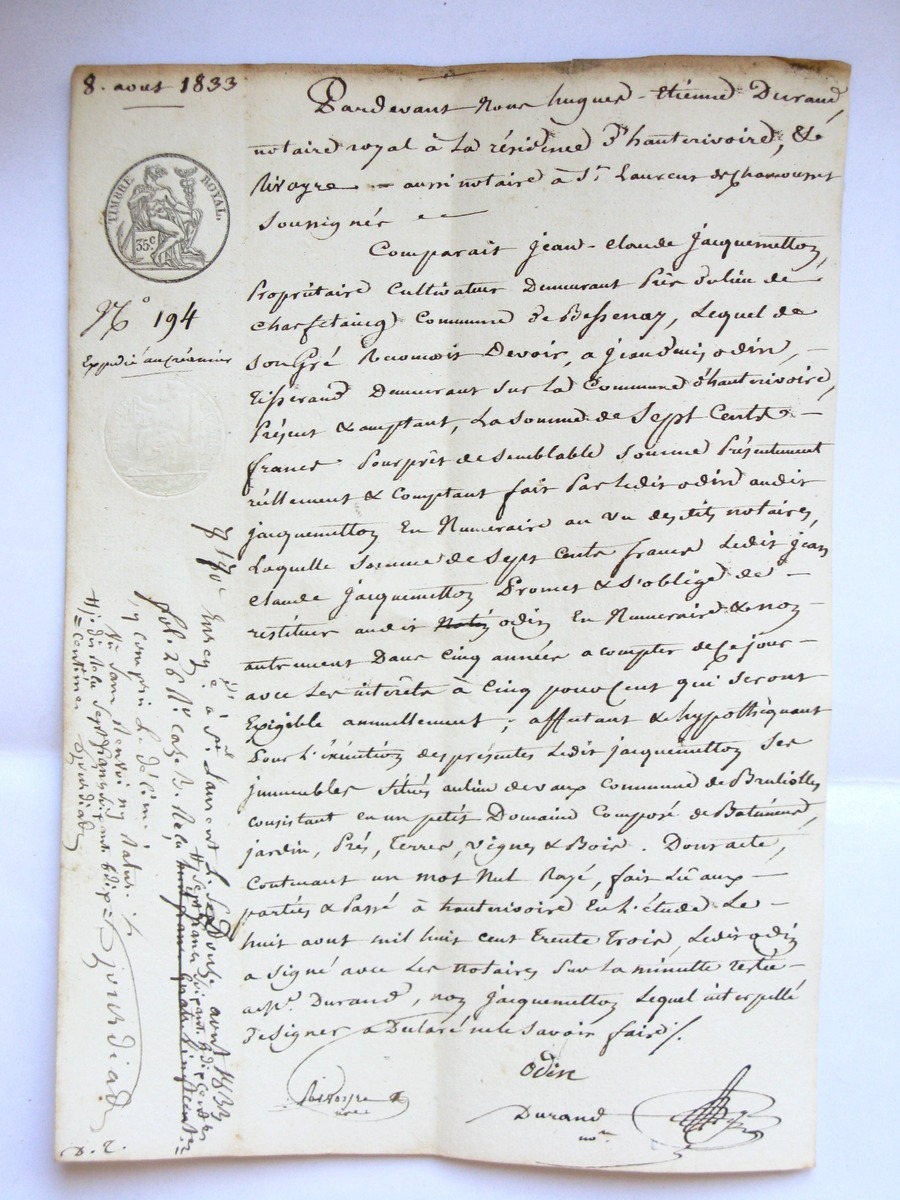 8. aout 1833
Pardevant Nous hugues-étienne Durand,
notaire royal à la résidence d'hauterivoire, &
Rivoyre aussi notaire à St. Laurent de chamousset
soussignés
Comparait jean-claude jacquemetton,
Propriétaire Cultivateur Demeurant
Commune de Bessenay, Lequel de
son gré Reconnoit Devoir, a jean odin,
tisserand Demeurant sur la Commune d'hauterivoire,
Présent & acceptant, La somme de Sept Cents
francs Pour prêt de semblable somme Présentement
réellement & Comptant fait Par Ledit odin audit
jacquemetton En Numeraire au vu desdits notaires,
Laquelle somme de Sept Cents francs Ledit jean
claude jacquemetton Promet & s'oblige de
restituer audit odin En Numeraire & non
autrement Dans Cinq années a compter de ce jour
avec Les intérêts à Cinq pour Cent qui seront
Exigible annuellement; affectant & hypothéquant
Pour L'éxécution des présentes Ledit jacquemetton Ses
immeubles Situés au lieu de vaux Commune de Brullioles
consistant en un petit Domaine Composé de Batiments,
jardin, Prés, Terres, vignes & Bois. Dont acte,
Contenant un mot Nul Rayé, fait Lû aux
parties & Passé à hauterivoire En L'étude Le
huit aout mil huit cent trente trois, Ledit odin
a signé avec Les notaires Sur La minute restée
a Me. Durand, non jacquemetton Lequel interpellé
De signer a Déclaré ne le Savoir faire /.
odin
Rivoyre
nre
Durand
nore
TIMBRE ROYAL.
35 c
No 194
Expedié au créancier
Enreg. à St. Laurent Le Douze aout 1833
fol. 26
jourdiad